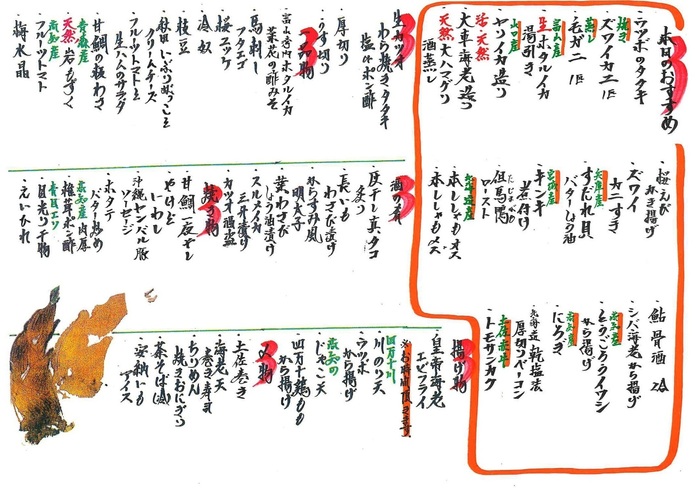 本日のおすすめ
・ウツボのタタキ
焼き
・ズワイガニ 1匹
蒸し
・毛ガニ 1匹
富山産
・生ホタルイカ
湯引き
山口産
・ヤリイカ造り
活・天然
・大車海老造り
天然
・大ハマグリ
酒蒸し
・桜えび
かき揚げ
・ズワイ
カニすき
兵庫産
・すだれ貝
バターしょう油
宮城産
・キンキ
煮付け
たじまがも
・但馬鴨
ロースト
北海道産
・本ししゃもオス
・本ししゃもメス
・鮎骨酒 2合
・シバ海老から揚げ
高知産
・とうごろうイワシ
から揚げ
高知産
・にろぎ
から揚げ
・北海道 乾塩法
厚切ベーコン
土佐赤牛
・トモサンカク
・生カツオ
わら焼きタタキ
塩orポン酢
・厚切り
・うす切り
一品物
・富山湾内ホタルイカ
菜花の酢みそ
・馬刺し
フタエゴ
・桜ユッケ
・冷奴
・枝豆
・秋田いぶりがっこと
クリームチーズ
・フルーツトマトと
生ハムのサラダ
・甘鯛の板わさ
青森産
・天然岩もずく
高知産
・フルーツトマト
・梅水晶
酒の肴
・灰干し真ダコ
炙り
・長いも
わさび漬け
・からすみ風
明太子
・葉わさび
しょう油漬け
・スルメイカ
三升漬け
・カツオ酒盗
焼き物
・甘鯛一夜干し
・やけど
・いわし
・沖縄ヤンバル豚
ソーセージ
・ホタテ
バター炒め
高知産
・椎茸 肉厚
ポン酢
青目エソ
・目光り干物
・えいひれ
揚げ物
・皇帝海老
エビフライ
※お時間頂きます
四万十川
・川のり天
・ウツボ
から揚げ
高知の
・じゃこ天
・四万十鶏もも
から揚げ
〆物
・土佐巻き
・海老天
巻き寿司
・ちりめん
焼きおにぎり
・茶そば(温)
・安納いも
アイス